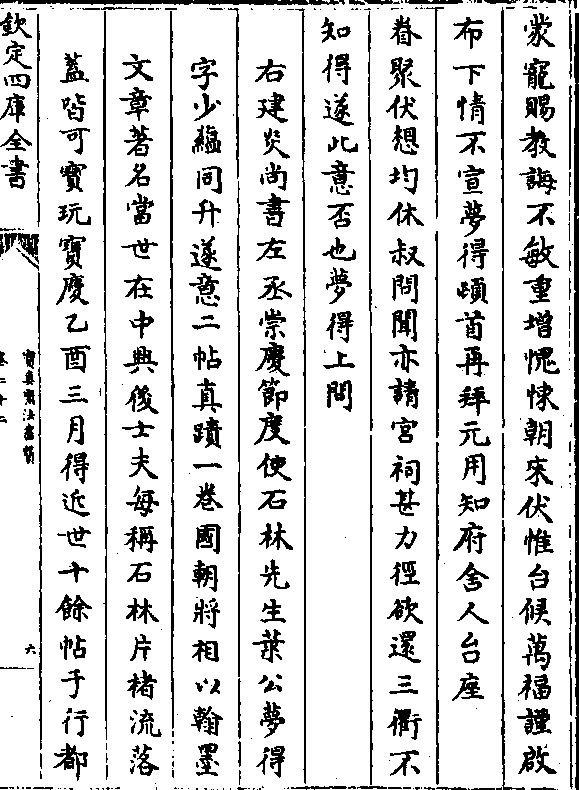 蒙寵賜教誨不敏重増愧悚朝來伏惟台候萬福謹啟
布下情不宣夢得頓首再拜元用知府舍人台座
眷聚伏想均休叔問聞亦請宮祠甚力徑欲還三衢不
知得遂此意否也夢得上問
右建炎尚書左丞崇慶節度使石林先生葉公夢得
字少藴同升遂意二帖真蹟一卷國朝將相以翰墨
文章著名當世在中興後士夫每稱石林片楮流落
蓋皆可寶玩寶慶乙酉三月得近世十餘帖于行都
欽定四庫全書
寶真齋法書贊
卷二十二
六